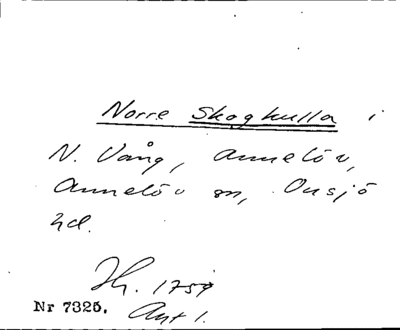 Norre Skogkulla i
N. Vång, Annelöv,
Annelöv sn, Onsjö
hd.
Jh. 1759
Nr 7325. Akt 1.